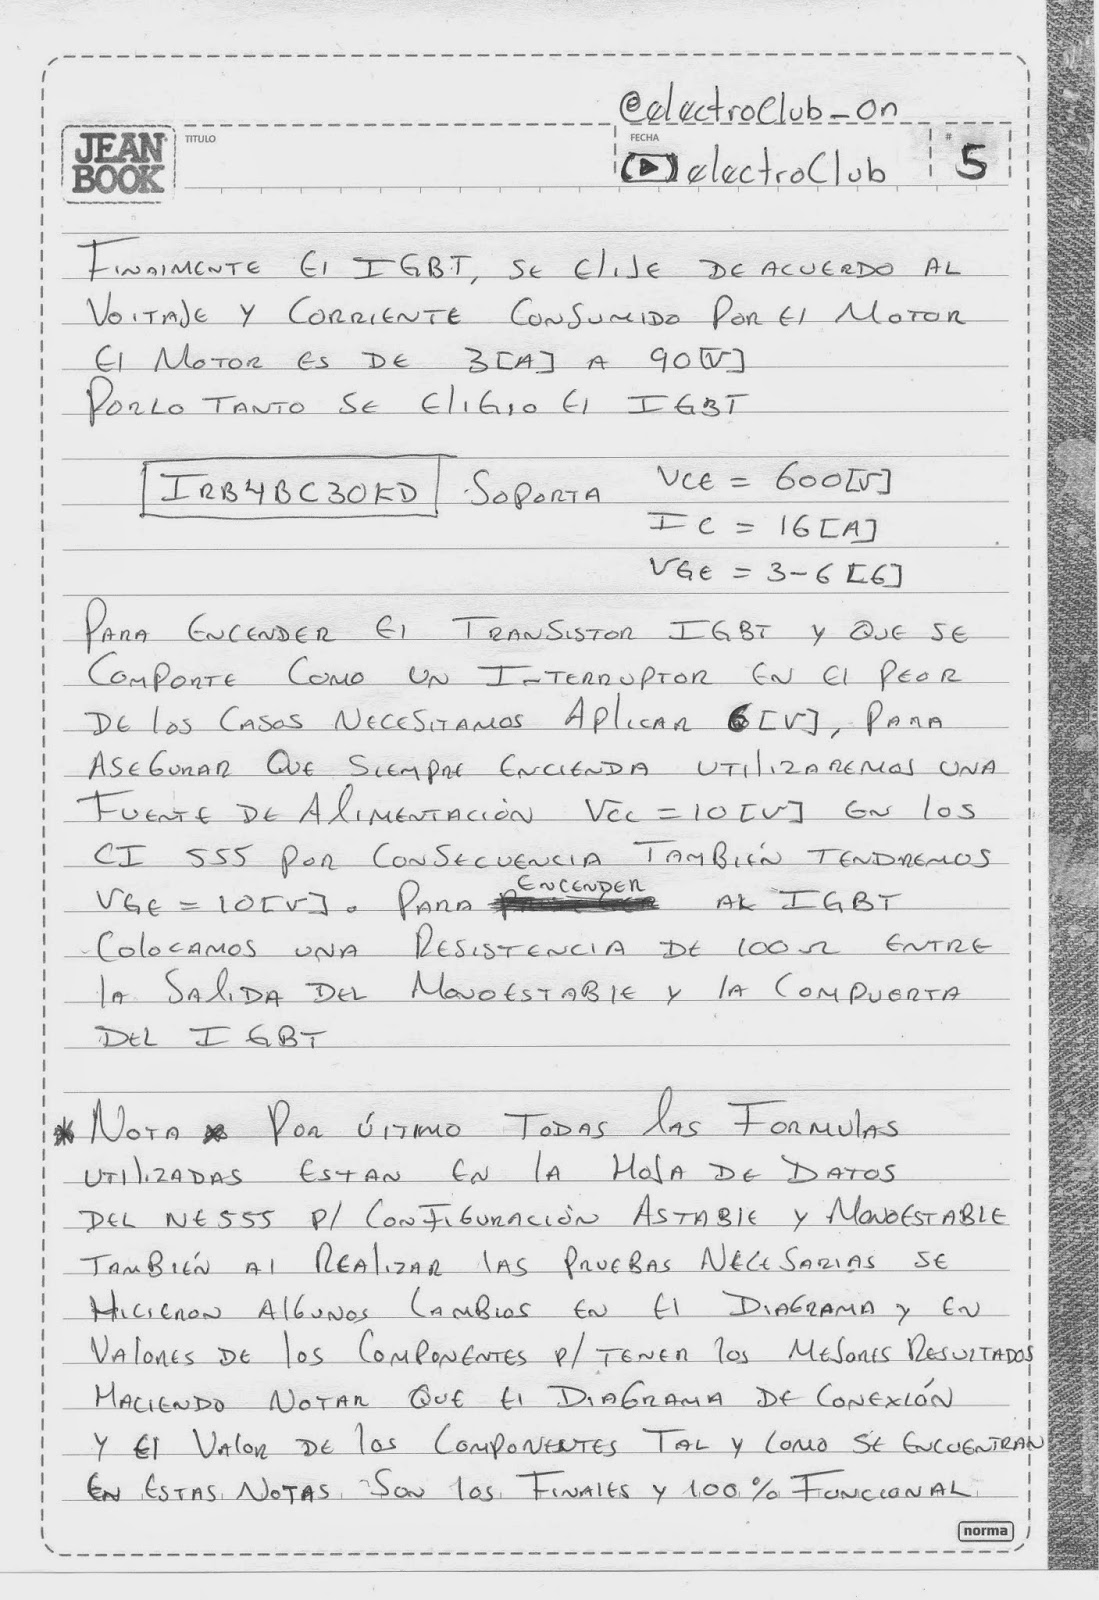 @electroClub_on
JEAN BOOK
TITULO
FECHA
electroClub
# 5
FINALMENTE El IGBT, SE ElIJE DE ACUERDO AL
VOLTAJE Y CORRIENTE CONSUMIDO POR El MOTOR
El MOTOR ES DE 3[A] A 90[V]
PORLO TANTO SE ELIGIO El IGBT
IRB4BC30KD SOPORTA VCE = 600[V]
IC = 16[A]
VGE = 3-6[6]
PARA ENCENDER El TRANSISTOR IGBT y QUE SE
COMPORTE COMO UN INTERRUPTOR EN El PEOR
DE los CASOS NECESITAMOS APLICAR 6[V], PARA
ASEGURAR QUE SIEMPRE ENCIENDA UTILIZAREMOS UNA
FUENTE DE ALIMENTACIÓN Vcc = 10[V] EN los
CI 555 POR CONSECUENCIA TAMBIÉN TENDREMOS
VGE = 10[V]. PARA ENCENDER AL IGBT
COLOCAMOS UNA RESISTENCIA DE 100Ω ENTRE
lA SALIDA DEL MONOESTABlE y lA COMPUERTA
DEL IGBT
* NOTA * POR ÚLTIMO TODAS lAS FORMULAS
UTILIZADAS ESTAN EN lA HOJA DE DATOS
DEL NE555 P/ CONFIGURACIÓN ASTABlE y MONOESTABLE
TAMBIÉN Al REALIZAR lAS PRUEBAS NECESARIAS SE
HICIERON ALGUNOS CAMBIOS EN El DIAGRAMA y EN
VALORES DE los COMPONENTES P/ TENER los MEJORES RESULTADOS
HACIENDO NOTAR QUE El DIAGRAMA DE CONEXIÓN
Y El VALOR DE los COMPONENTES TAL y COMO SE ENCUENTRAN
EN ESTAS NOTAS SON los FINALES y 100% FUNCIONAL
norma